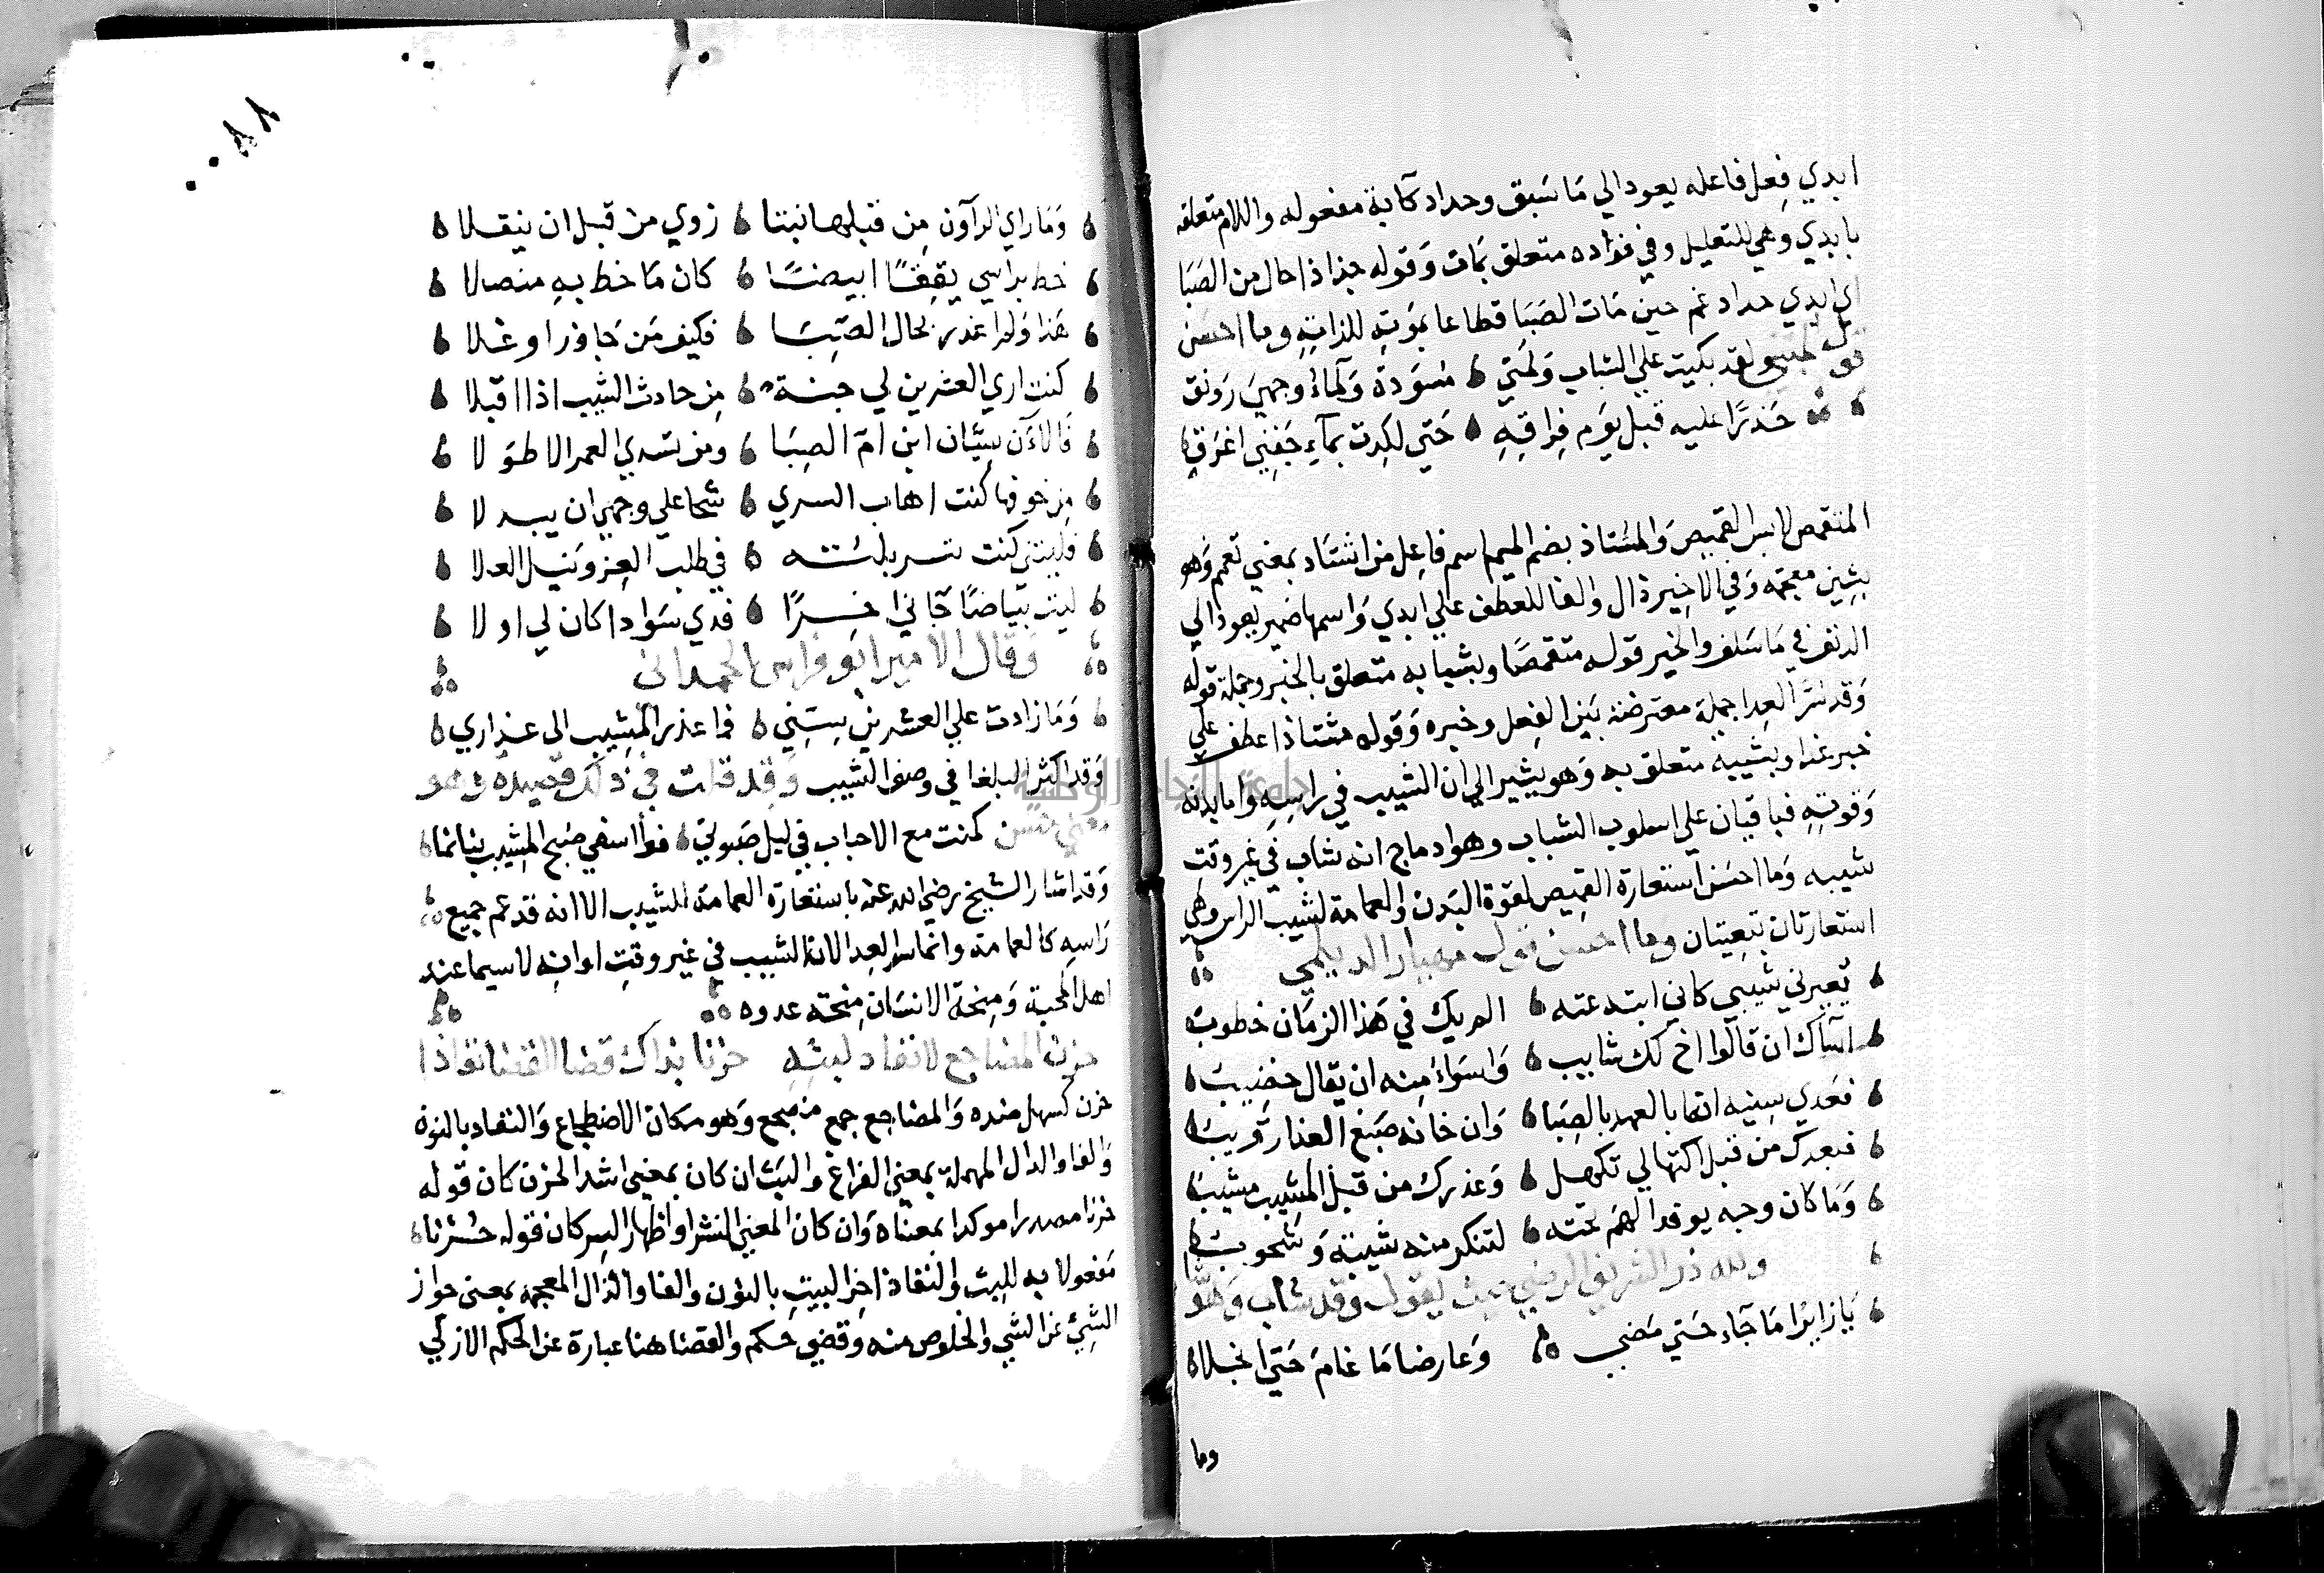 ابدي فعل فاعله يعود الي مَا سَبق وحداد كآبة مفعوله واللام متعلقه
بابدي وهي للتعليل وفي فؤاده متعلق بمات وَقوله جذاذا حال من الصَبَا
اي ابدي حداد غم حين مَات الصَبَا قطاعا بموَتهِ للذاتهِ وما احسَن
ولقد بكيت علي الشباب وَلمتي مسوَدة وَلمآء وجهيَ رَونق
حَذرًا عليه قبل يَوم فراقِهِ حَتي لكِدت بمآءِ جَفنِي اغرَق
المتقمص لابس القميص وَالمشتاذ بضم الميم اسم فاعِل من اشتَاد بمعني تعمم وَهو
بشِينٍ معجمَه وَفي الاخِيرة ذال والفا للعطف علي ابدي وَاسمها ضمير يعود الي
الدنف في مَا سَلف والخير قولـه متقمصًا وبشبابه متعلق بالخبر وجملة قوله
وَقد سَرَّ العِدا جملة معترضة بَين الفِعل وخبره وَقوله مشتاذا عطف علي
خبر غدا وبشيبه متعلق به وَهو يشير الي ان الشيب في راسِهِ واما بدنه
وَقوتهِ فباقيان علي اسلوب الشباب وهو ادماج انه شاب في غير وقت
شيبه وَما احسَن استعارة القميص لقوة البَدن والعمامة لشيب الراس وهي
استعارتان تبعِيتان وما احسن قول مهيار الديلمي
تعيرني شيبي كاني ابتدعته المريك في هَذا الزمَان خطوب
اسآك ان قالوا اخ لك شايب وَاسوَاء منه ان يقال خضِيبَ
فعَدي سِنِيه انما بالعهد بالصِبَا وَان خانه صَبغ العذار قريبَ
فبعدك من قبل اكتهالي تكهل وَغدرك من قبل المشِيب مشيبَ
وَمَا كان وجه يوقد الهَم تحته لتنكر منه شيبَة وَشحوبَ
ولله در الشريف الرضي حيث يقول وقد شاب وَهو
يَا زايرًا مَا جَآء حَتي مَضي وَعارضا مَا غامَ حَتي انجلا
وما
وَمَا راي الرآون مِن قبلها نبتا زوي من قبل ان ينقلا
خط براسي يقِقًا ابيضًا كان مَا خط بهِ منصلا
هَذا وَلم اغدر بحال الصّبَا فكيف مَن جَاوزا وعلا
كنت اري العشرين لي جنة مِن حادث الشيب اذا اقبلا
فَالآن سِيّان ابن امّ الصِبَا ومن تسدي العمر الاطوَلا
مِن خوفها كنت اهاب السري شحا علي وجهي ان يبدلا
فليتني كنت تسربلته في طلب العِز وَنيل العلا
ليث بَيَاضًا جَاني اخرًا فدي سَوادا كان لي اولا
وَقال الامير ابو فراس الحمداني
وَمَا زادت علي العشرين سِنِي فما عذر المشِيب الي عذاري
وَقد اكثر البلغا في وصف الشيب وَقد قلت في ذلك قصيده وهو
كنت مع الاحباب في ليل صَبوتي فوا اسفي صبح المشِيب بنا نما
وَقد اشار الشيخ رضي الله عنه باستعارة العمامة للشيب الا انه قد عم جميع
رَاسِهِ كالعمامة وانما سر العِدا لان الشيب في غير وقتِ اوانهِ لا سيما عند
اهل المحبة وَمِنحة الانسَان مِنحته عدوه
حزن المضاجع لا نفاد لبثهِ حزنا بذاك قضا القضا نفاذا
حزن كسهل ضده وَالمضاجع جمع مضجع وَهو مكان الاضطجاع وَالنفاد بالنون
وَالفا والدال المهملة بمعني الفراغ والبَث ان كان بمعني اشد الحزن كان قوله
حزنا مصدرا موكدا بمعناه وَان كان المعني النشر او اظهار السِر كان قوله حُزنا
مَفعولا به للبث والنفاذ اخِر البيتِ بالنون والفا والذال المعجمه بمعني جواز
الشيْ عن الشي والخلوص منه وَقضي حكم والقضا هنا عبارة عن الحكم الازلي